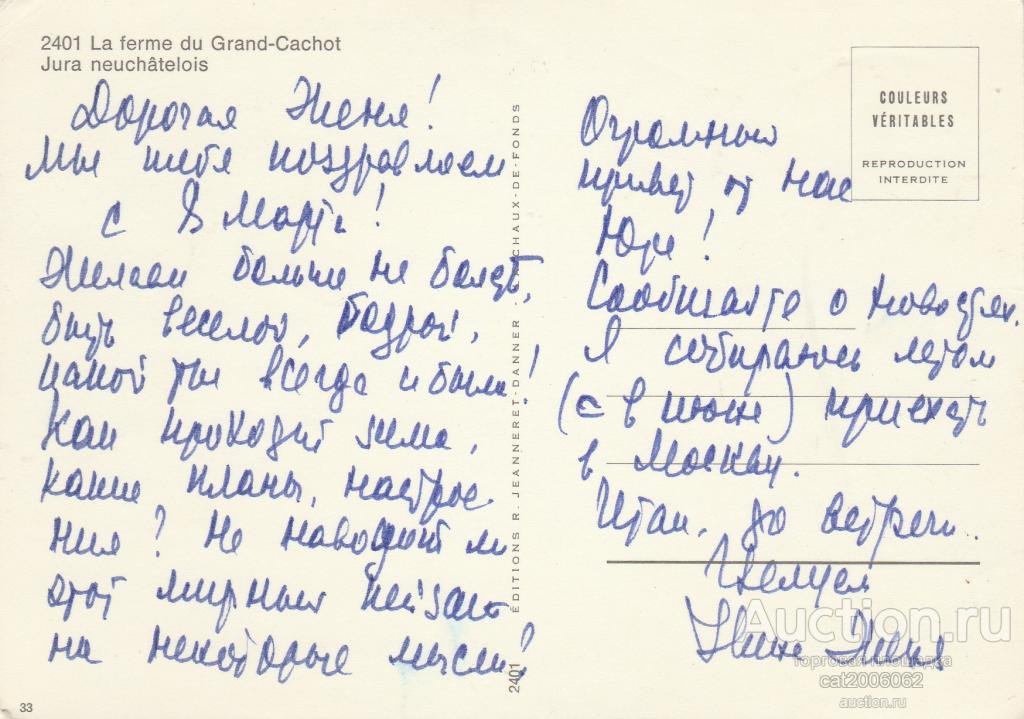 2401 La ferme du Grand-Cachot
Jura neuchâtelois
Дорогая Женя!
Мы тебя поздравляем
с 8 Марта!
Желаем больше не болеть,
быть веселой, бодрой,
какой ты всегда и была!
Как проходит зима,
какие планы, настрое-
ния? Не наводит ли
этот мирный пейзаж
на некоторые мысли?
33
ÉDITIONS R. JEANNERET-DANNER CHAUX-DE-FONDS
2401
COULEURS
VÉRITABLES
REPRODUCTION
INTERDITE
Огромный
привет от нас
Юре!
Сообщайте о новостях.
Я собираюсь летом
(в июне) приехать
в Москву.
Итак, до встречи..
Целуем
Женя
Auction.ru
торговая площадка
cat2006062
auction.ru